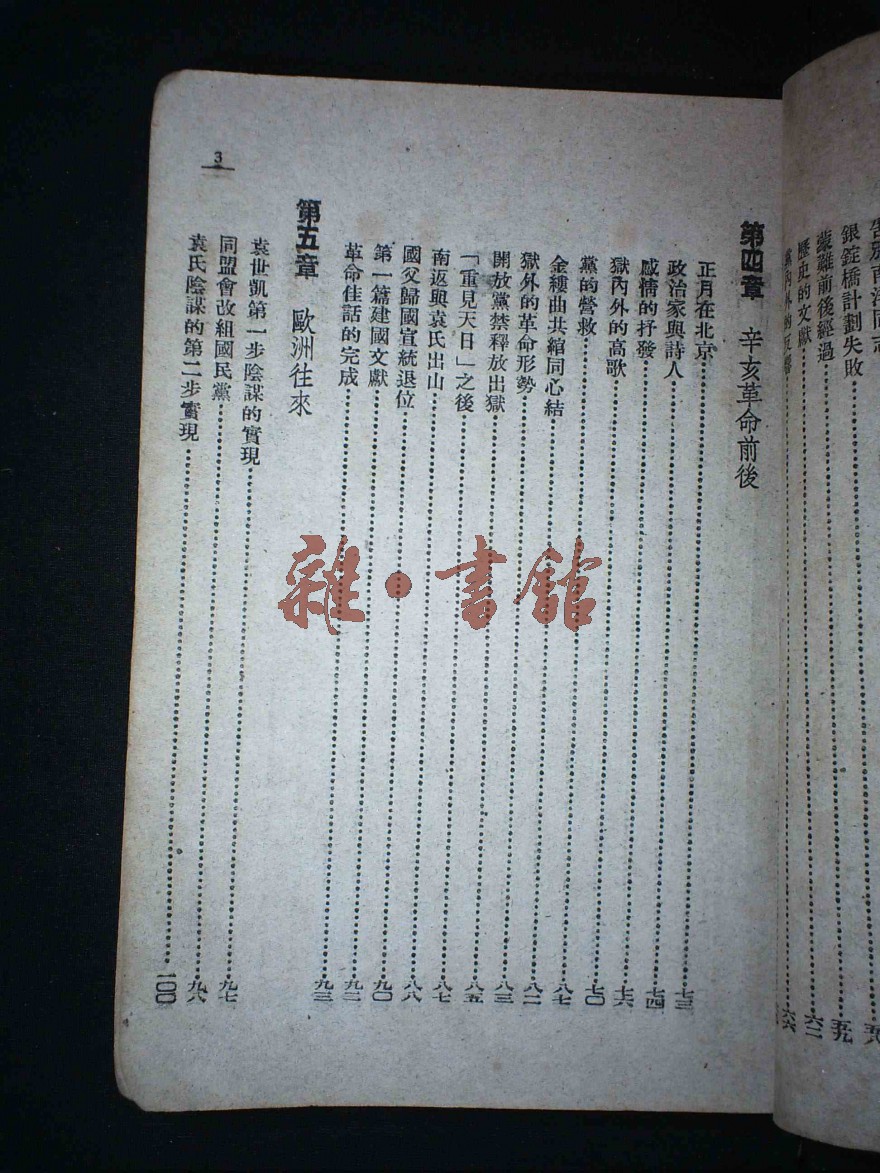 告別南洋同志……五八
銀錠橋計劃失敗……五九
蒙難前後經過……六二
歷史的文獻……六六
黨內外的反響……
第四章 辛亥革命前後
正月在北京……七三
政治家與詩人……七四
感情的抒發……七六
獄內外的高歌……七〇
黨的營救……八七
金縷曲共綰同心結……八二
獄外的革命形勢……八三
開放黨禁釋放出獄……八五
「重見天日」之後……八七
南返與袁氏出山……八八
國父歸國宣統退位……九〇
第一篇建國文獻……九二
革命佳話的完成……九三
第五章 歐洲往來
袁世凱第一步陰謀的實現……九七
同盟會改組國民黨……九八
袁氏陰謀的第二步實現……一〇〇
3
雜·書館